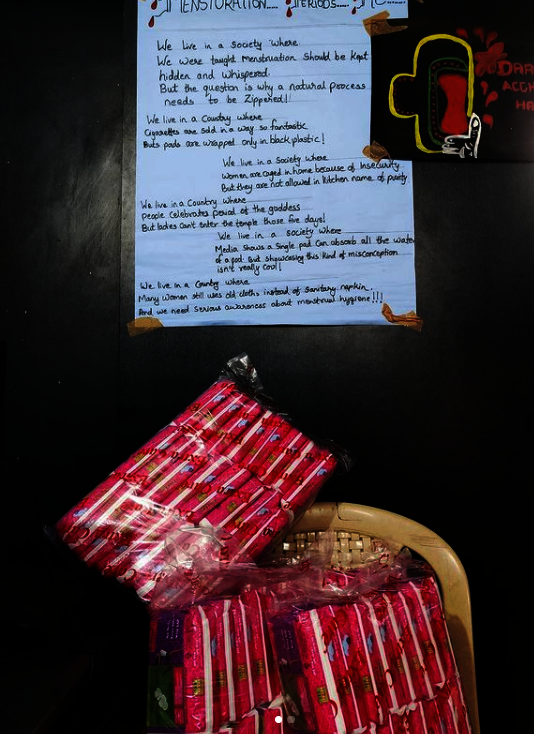 MENSTURATION.... PERIODS....
We live in a Society where
We were taught Menstruation should be kept
hidden and whispered
But the question is why a natural process
needs to be Zippered!
We live in a Country where
Cigarettes are sold in a way so fantastic
Buts pads are wrapped only in black plastic!
We live in a Society where
Women are caged in home because of Insecurity
But they are not allowed in kitchen name of purity
We live in a Country where
People Celebrates period of the goddess
But ladies can't enter the temple those five days!
We live in a Society where
Media Shows a Single pad Can absorb all the water
of a pond But showcasing this kind of misconception
isn't really cool!
We live in a Country where
Many Women still uses old cloths instead of Sanitary napkin.
And we need serious awareness about menstrual hygiene!!!